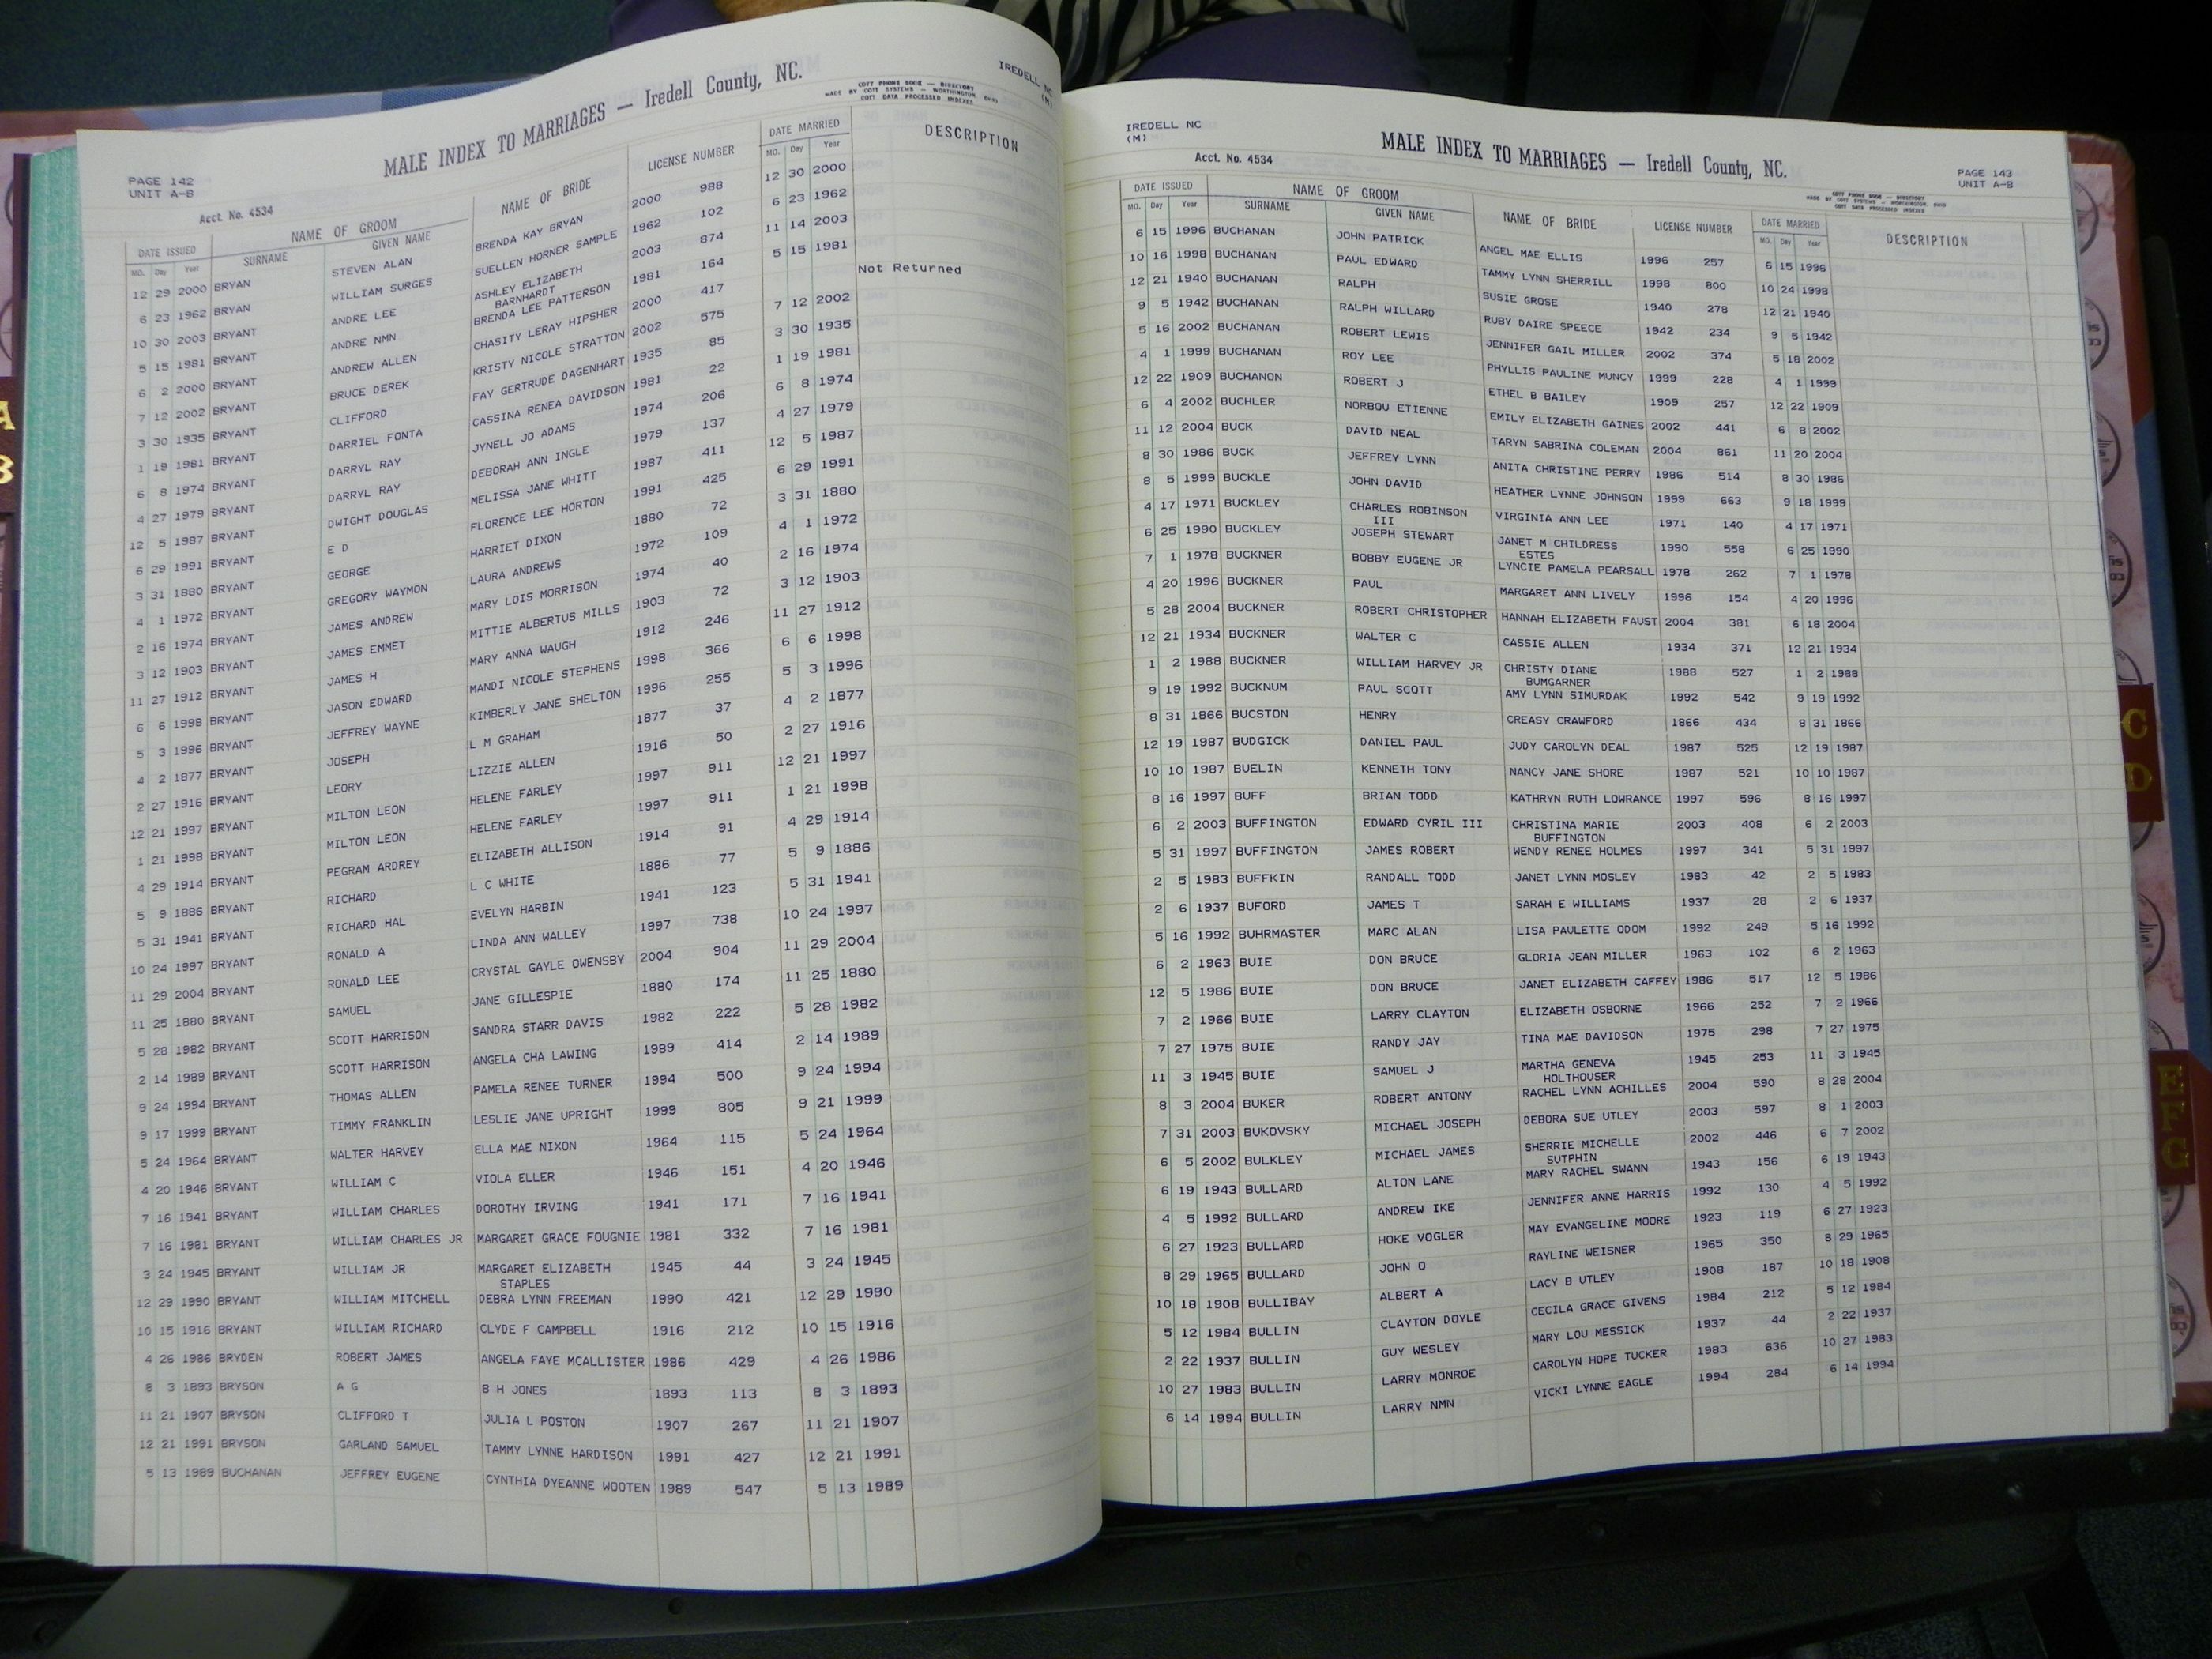 MALE INDEX TO MARRIAGES — Iredell County, NC.
IREDELL NC
(M)
COTT PHONE BOOK — DIRECTORY
MADE BY COTT SYSTEMS — WORTHINGTON, OHIO
COTT DATA PROCESSED INDEXES
PAGE 142
UNIT A-B
Acct. No. 4534
DATE ISSUED NAME OF GROOM NAME OF BRIDE LICENSE NUMBER DATE MARRIED DESCRIPTION
MO. Day Year SURNAME GIVEN NAME MO. Day Year
12 29 2000 BRYAN STEVEN ALAN BRENDA KAY BRYAN 2000 988 12 30 2000
6 23 1962 BRYAN WILLIAM SURGES SUELLEN HORNER SAMPLE 1962 102 6 23 1962
10 30 2003 BRYANT ANDRE LEE ASHLEY ELIZABETH 2003 874 11 14 2003
BARNHARDT
5 15 1981 BRYANT ANDRE NMN BRENDA LEE PATTERSON 1981 164 5 15 1981
6 2 2000 BRYANT ANDREW ALLEN CHASITY LERAY HIPSHER 2000 417 Not Returned
7 12 2002 BRYANT BRUCE DEREK KRISTY NICOLE STRATTON 2002 575 7 12 2002
3 30 1935 BRYANT CLIFFORD FAY GERTRUDE DAGENHART 1935 85 3 30 1935
1 19 1981 BRYANT DARRIEL FONTA CASSINA RENEA DAVIDSON 1981 22 1 19 1981
6 8 1974 BRYANT DARRYL RAY JYNELL JO ADAMS 1974 206 6 8 1974
4 27 1979 BRYANT DARRYL RAY DEBORAH ANN INGLE 1979 137 4 27 1979
12 5 1987 BRYANT DWIGHT DOUGLAS MELISSA JANE WHITT 1987 411 12 5 1987
6 29 1991 BRYANT E D FLORENCE LEE HORTON 1991 425 6 29 1991
3 31 1880 BRYANT GEORGE HARRIET DIXON 1880 72 3 31 1880
4 1 1972 BRYANT GREGORY WAYMON LAURA ANDREWS 1972 109 4 1 1972
2 16 1974 BRYANT JAMES ANDREW MARY LOIS MORRISON 1974 40 2 16 1974
3 12 1903 BRYANT JAMES EMMET MITTIE ALBERTUS MILLS 1903 72 3 12 1903
11 27 1912 BRYANT JAMES H MARY ANNA WAUGH 1912 246 11 27 1912
6 6 1998 BRYANT JASON EDWARD MANDI NICOLE STEPHENS 1998 366 6 6 1998
5 3 1996 BRYANT JEFFREY WAYNE KIMBERLY JANE SHELTON 1996 255 5 3 1996
4 2 1877 BRYANT JOSEPH L M GRAHAM 1877 37 4 2 1877
2 27 1916 BRYANT LEORY LIZZIE ALLEN 1916 50 2 27 1916
12 21 1997 BRYANT MILTON LEON HELENE FARLEY 1997 911 12 21 1997
1 21 1998 BRYANT MILTON LEON HELENE FARLEY 1997 911 1 21 1998
4 29 1914 BRYANT PEGRAM ARDREY ELIZABETH ALLISON 1914 91 4 29 1914
5 9 1886 BRYANT RICHARD L C WHITE 1886 77 5 9 1886
5 31 1941 BRYANT RICHARD HAL EVELYN HARBIN 1941 123 5 31 1941
10 24 1997 BRYANT RONALD A LINDA ANN WALLEY 1997 738 10 24 1997
11 29 2004 BRYANT RONALD LEE CRYSTAL GAYLE OWENSBY 2004 904 11 29 2004
11 25 1880 BRYANT SAMUEL JANE GILLESPIE 1880 174 11 25 1880
5 28 1982 BRYANT SCOTT HARRISON SANDRA STARR DAVIS 1982 222 5 28 1982
2 14 1989 BRYANT SCOTT HARRISON ANGELA CHA LAWING 1989 414 2 14 1989
9 24 1994 BRYANT THOMAS ALLEN PAMELA RENEE TURNER 1994 500 9 24 1994
9 17 1999 BRYANT TIMMY FRANKLIN LESLIE JANE UPRIGHT 1999 805 9 21 1999
5 24 1964 BRYANT WALTER HARVEY ELLA MAE NIXON 1964 115 5 24 1964
4 20 1946 BRYANT WILLIAM C VIOLA ELLER 1946 151 4 20 1946
7 16 1941 BRYANT WILLIAM CHARLES DOROTHY IRVING 1941 171 7 16 1941
7 16 1981 BRYANT WILLIAM CHARLES JR MARGARET GRACE FOUGNIE 1981 332 7 16 1981
3 24 1945 BRYANT WILLIAM JR MARGARET ELIZABETH 1945 44 3 24 1945
STAPLES
12 29 1990 BRYANT WILLIAM MITCHELL DEBRA LYNN FREEMAN 1990 421 12 29 1990
10 15 1916 BRYANT WILLIAM RICHARD CLYDE F CAMPBELL 1916 212 10 15 1916
4 26 1986 BRYDEN ROBERT JAMES ANGELA FAYE MCALLISTER 1986 429 4 26 1986
8 3 1893 BRYSON A G B H JONES 1893 113 8 3 1893
11 21 1907 BRYSON CLIFFORD T JULIA L POSTON 1907 267 11 21 1907
12 21 1991 BRYSON GARLAND SAMUEL TAMMY LYNNE HARDISON 1991 427 12 21 1991
5 13 1989 BUCHANAN JEFFREY EUGENE CYNTHIA DYEANNE WOOTEN 1989 547 5 13 1989
IREDELL NC
(M)
MALE INDEX TO MARRIAGES — Iredell County, NC.
Acct. No. 4534
PAGE 143
UNIT A-B
COTT PHONE BOOK — DIRECTORY
MADE BY COTT SYSTEMS — WORTHINGTON, OHIO
COTT DATA PROCESSED INDEXES
DATE ISSUED NAME OF GROOM NAME OF BRIDE LICENSE NUMBER DATE MARRIED DESCRIPTION
MO. Day Year SURNAME GIVEN NAME MO. Day Year
6 15 1996 BUCHANAN JOHN PATRICK ANGEL MAE ELLIS 1996 257 6 15 1996
10 16 1998 BUCHANAN PAUL EDWARD TAMMY LYNN SHERRILL 1998 800 10 24 1998
12 21 1940 BUCHANAN RALPH SUSIE GROSE 1940 278 12 21 1940
9 5 1942 BUCHANAN RALPH WILLARD RUBY DAIRE SPEECE 1942 234 9 5 1942
5 16 2002 BUCHANAN ROBERT LEWIS JENNIFER GAIL MILLER 2002 374 5 18 2002
4 1 1999 BUCHANAN ROY LEE PHYLLIS PAULINE MUNCY 1999 228 4 1 1999
12 22 1909 BUCHANON ROBERT J ETHEL B BAILEY 1909 257 12 22 1909
6 4 2002 BUCHLER NORBOU ETIENNE EMILY ELIZABETH GAINES 2002 441 6 8 2002
11 12 2004 BUCK DAVID NEAL TARYN SABRINA COLEMAN 2004 861 11 20 2004
8 30 1986 BUCK JEFFREY LYNN ANITA CHRISTINE PERRY 1986 514 8 30 1986
8 5 1999 BUCKLE JOHN DAVID HEATHER LYNNE JOHNSON 1999 663 9 18 1999
4 17 1971 BUCKLEY CHARLES ROBINSON VIRGINIA ANN LEE 1971 140 4 17 1971
III
6 25 1990 BUCKLEY JOSEPH STEWART JANET M CHILDRESS 1990 558 6 25 1990
ESTES
7 1 1978 BUCKNER BOBBY EUGENE JR LYNCIE PAMELA PEARSALL 1978 262 7 1 1978
4 20 1996 BUCKNER PAUL MARGARET ANN LIVELY 1996 154 4 20 1996
5 28 2004 BUCKNER ROBERT CHRISTOPHER HANNAH ELIZABETH FAUST 2004 381 6 18 2004
12 21 1934 BUCKNER WALTER C CASSIE ALLEN 1934 371 12 21 1934
1 2 1988 BUCKNER WILLIAM HARVEY JR CHRISTY DIANE 1988 527 1 2 1988
BUMGARNER
9 19 1992 BUCKNUM PAUL SCOTT AMY LYNN SIMURDAK 1992 542 9 19 1992
8 31 1866 BUCSTON HENRY CREASY CRAWFORD 1866 434 8 31 1866
12 19 1987 BUDGICK DANIEL PAUL JUDY CAROLYN DEAL 1987 525 12 19 1987
10 10 1987 BUELIN KENNETH TONY NANCY JANE SHORE 1987 521 10 10 1987
8 16 1997 BUFF BRIAN TODD KATHRYN RUTH LOWRANCE 1997 596 8 16 1997
6 2 2003 BUFFINGTON EDWARD CYRIL III CHRISTINA MARIE 2003 408 6 2 2003
BUFFINGTON
5 31 1997 BUFFINGTON JAMES ROBERT WENDY RENEE HOLMES 1997 341 5 31 1997
2 5 1983 BUFFKIN RANDALL TODD JANET LYNN MOSLEY 1983 42 2 5 1983
2 6 1937 BUFORD JAMES T SARAH E WILLIAMS 1937 28 2 6 1937
5 16 1992 BUHRMASTER MARC ALAN LISA PAULETTE ODOM 1992 249 5 16 1992
6 2 1963 BUIE DON BRUCE GLORIA JEAN MILLER 1963 102 6 2 1963
12 5 1986 BUIE DON BRUCE JANET ELIZABETH CAFFEY 1986 517 12 5 1986
7 2 1966 BUIE LARRY CLAYTON ELIZABETH OSBORNE 1966 252 7 2 1966
7 27 1975 BUIE RANDY JAY TINA MAE DAVIDSON 1975 298 7 27 1975
11 3 1945 BUIE SAMUEL J MARTHA GENEVA 1945 253 11 3 1945
HOLTHOUSER
8 3 2004 BUKER ROBERT ANTONY RACHEL LYNN ACHILLES 2004 590 8 28 2004
7 31 2003 BUKOVSKY MICHAEL JOSEPH DEBORA SUE UTLEY 2003 597 8 1 2003
6 5 2002 BULKLEY MICHAEL JAMES SHERRIE MICHELLE 2002 446 6 7 2002
SUTPHIN
6 19 1943 BULLARD ALTON LANE MARY RACHEL SWANN 1943 156 6 19 1943
4 5 1992 BULLARD ANDREW IKE JENNIFER ANNE HARRIS 1992 130 4 5 1992
6 27 1923 BULLARD HOKE VOGLER MAY EVANGELINE MOORE 1923 119 6 27 1923
8 29 1965 BULLARD JOHN O RAYLINE WEISNER 1965 350 8 29 1965
10 18 1908 BULLIBAY ALBERT A LACY B UTLEY 1908 187 10 18 1908
5 12 1984 BULLIN CLAYTON DOYLE CECILA GRACE GIVENS 1984 212 5 12 1984
2 22 1937 BULLIN GUY WESLEY MARY LOU MESSICK 1937 44 2 22 1937
10 27 1983 BULLIN LARRY MONROE CAROLYN HOPE TUCKER 1983 636 10 27 1983
6 14 1994 BULLIN LARRY NMN VICKI LYNNE EAGLE 1994 284 6 14 1994
A
B
C
D
E
F
G